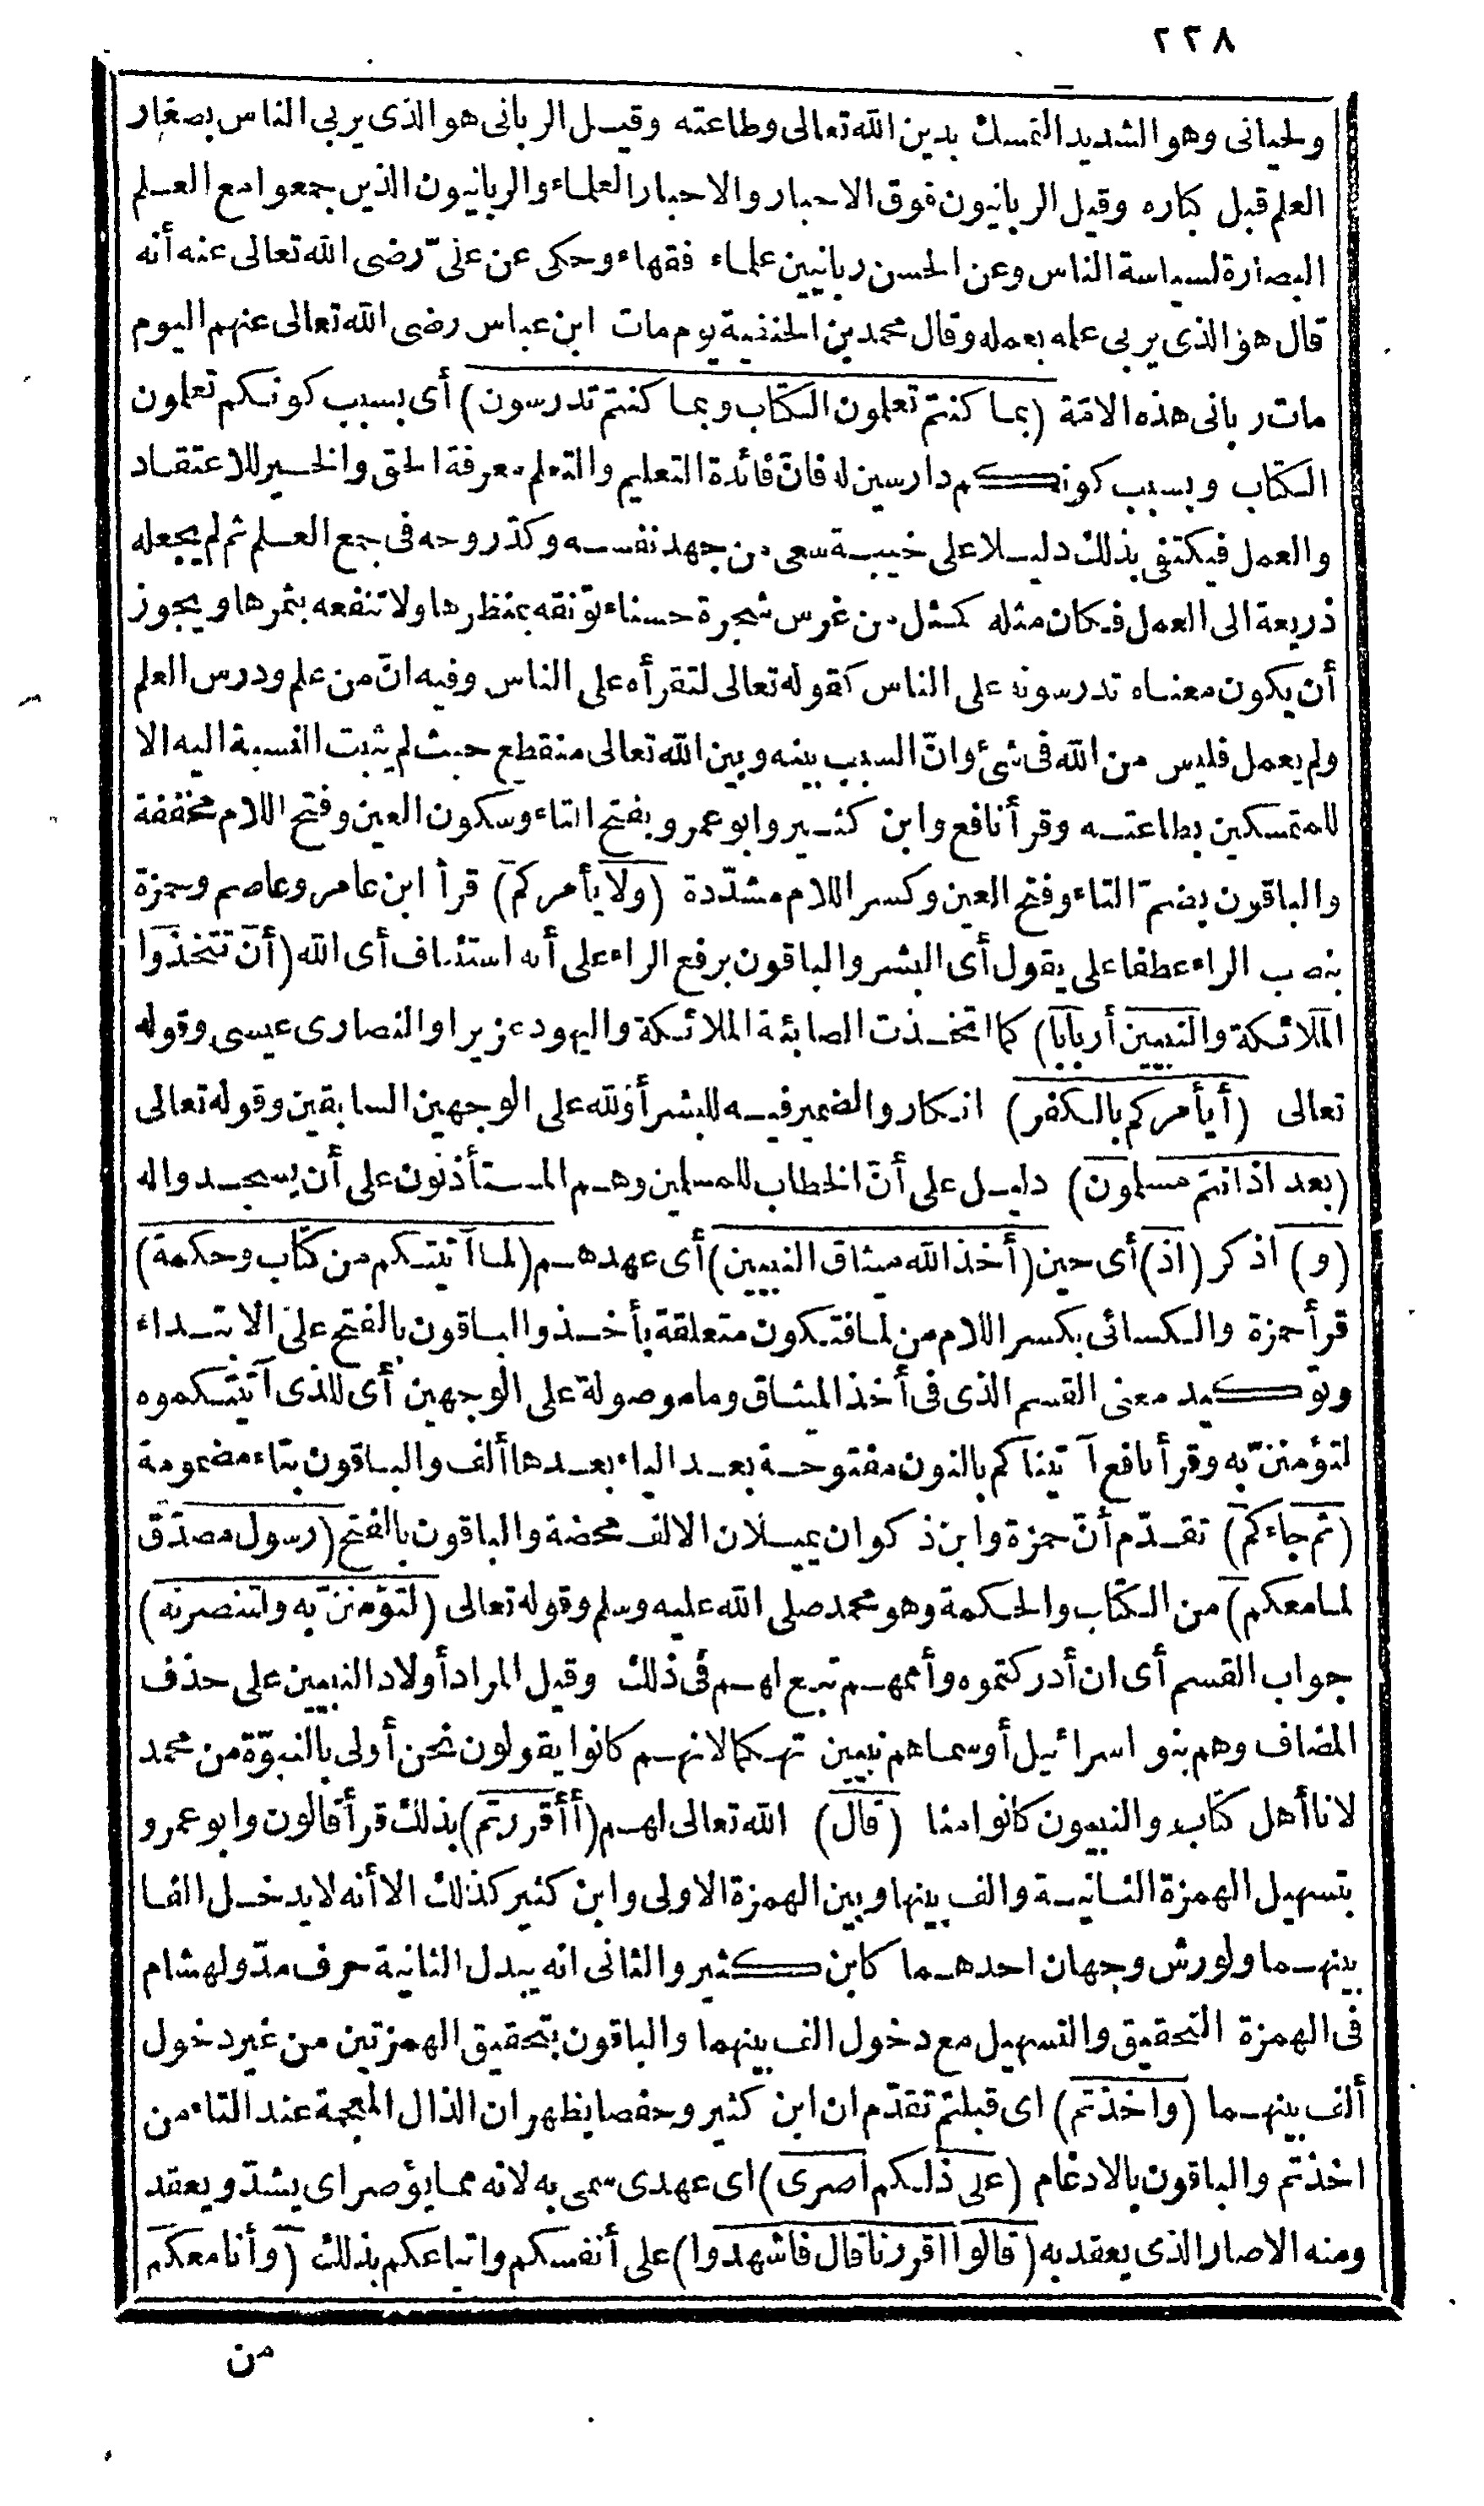 ٢٢٨
ولحيانى وهو الشديد التمسك بدين الله تعالى وطاعته وقيل الربانى هو الذى يربى الناس بصغار
العلم قبل كباره وقيل الربانيون فوق الاحبار والاحبار العلماء والربانيون الذين جمعوا مع العلم
البصارة لسياسة الناس وعن الحسن ربانيين علماء فقهاء وحكى عن علىّ رضى الله تعالى عنه أنه
قال هو الذى يربى علمه بعمله وقال محمد بن الحنفية يوم مات ابن عباس رضى الله تعالى عنهم اليوم
مات ربانى هذه الامّة (بما كنتم تعلمون الكتاب وبما كنتم تدرسون) أى بسبب كونكم تعلمون
الكتاب وبسبب كونكم دارسين له فانّ فائدة التعليم والتعلم معرفة الحق والخير للاعتقاد
والعمل فيكتفى بذلك دليلا على خيبة سعى من جهد نفسه وكدّ روحه فى جمع العلم ثم لم يجعله
ذريعة الى العمل فكان مثله كمثل من غرس شجرة حسناء تونقه بمنظرها ولا تنفعه بثمرها ويجوز
أن يكون معناه تدرسونه على الناس كقوله تعالى لتقرأه على الناس وفيه انّ من علم ودرس العلم
ولم يعمل فليس من الله فى شئ وانّ السبب بينه وبين الله تعالى منقطع حيث لم يثبت النسبة اليه الا
للمتمسكين بطاعته وقرأ نافع وابن كثير وابو عمرو بفتح التاء وسكون العين وفتح اللام مخففة
والباقون بضمّ التاء وفتح العين وكسر اللام مشدّدة (ولا يأمركم) قرأ ابن عامر وعاصم وحمزة
بنصب الراء عطفا على يقول أى البشر والباقون برفع الراء على أنه استئناف أى الله (أن تتخذوا
الملائكة والنبيين أربابا) كما اتخذت الصابئة الملائكة واليهود عزيرا والنصارى عيسى وقوله
تعالى (أيأمركم بالكفر) انكار والضمير فيه للبشر أو لله على الوجهين السابقين وقوله تعالى
(بعد اذ انتم مسلمون) دليل على أنّ الخطاب للمسلمين وهم المستأذنون على أن يسجدوا له
(و) اذكر (اذ) أى حين (أخذ الله ميثاق النبيين) أى عهدهم (لما آتيتكم من كتاب وحكمة)
قرأ حمزة والكسائى بكسر اللام من لما فتكون متعلقة بأخذ والباقون بالفتح على الابتداء
وتوكيد معنى القسم الذى فى أخذ الميثاق وما موصولة على الوجهين أى للذى آتيتكموه
لتؤمننّ به وقرأ نافع آتيناكم بالنون مفتوحة بعد الياء بعدها ألف والباقون بتاء مضمومة
(ثم جاءكم) تقدّم أنّ حمزة وابن ذكوان يميلان الالف محضة والباقون بالفتح (رسول مصدّق
لما معكم) من الكتاب والحكمة وهو محمد صلى الله عليه وسلم وقوله تعالى (لتؤمننّ به ولتنصرنه)
جواب القسم أى ان أدركتموه وأممهم تبع لهم فى ذلك وقيل المراد أولاد النبيين على حذف
المضاف وهم بنو اسرائيل أو سماهم نبيين تهكما لانهم كانوا يقولون نحن أولى بالنبوّة من محمد
لانا أهل كتاب والنبيون كانوا منا (قال) الله تعالى لهم (أأقررتم) بذلك قرأ قالون وابو عمرو
بتسهيل الهمزة الثانية والف بينها وبين الهمزة الاولى وابن كثير كذلك الا أنه لا يدخل الفا
بينهما ولورش وجهان احدهما كابن كثير والثانى انه يبدل الثانية حرف مدّ ولهشام
فى الهمزة التحقيق والتسهيل مع دخول الف بينهما والباقون بتحقيق الهمزتين من غير دخول
ألف بينهما (وأخذتم) اى قبلتم تقدّم ان ابن كثير وحفصا يظهران الذال المعجمة عند التاء من
اخذتم والباقون بالادغام (على ذلكم اصرى) اى عهدى سمى به لانه مما يؤصر اى يشدّ ويعقد
ومنه الاصار الذى يعقد به (قالوا اقررنا قال فاشهدوا) على أنفسكم واتباعكم بذلك (وأنا معكم
من